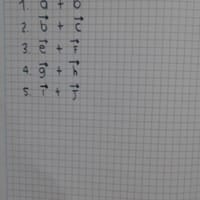 1. a⃗ + b⃗
2. b⃗ + c⃗
3. e⃗ + f⃗
4. g⃗ + h⃗
5. i⃗ + j⃗